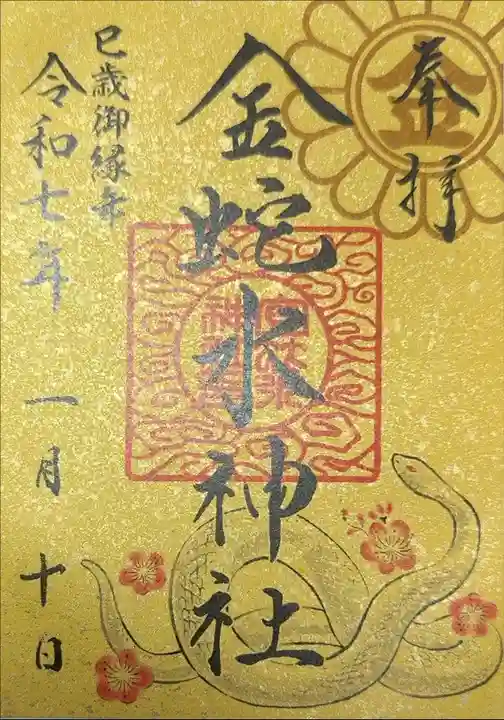 奉拝
金
金蛇水神社
巳歳御縁年
令和七年 一月 十日